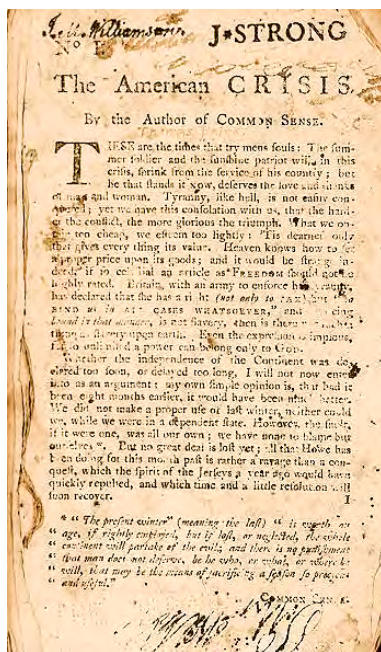 Williamson J*STRONG
The American CRISIS.
By the Author of COMMON SENSE.
THESE are the times that try mens souls: The sum-
mer soldier and the sunshine patriot will, in this
crisis, shrink from the service of his country; but
he that stands it now, deserves the love and thanks
of man and woman. Tyranny, like hell, is not easily con-
quered; yet we have this consolation with us, that the hard-
er the conflict, the more glorious the triumph. What we ob-
tain too cheap, we esteem too lightly: 'Tis dearness only
that gives every thing its value. Heaven knows how to set
a proper price upon its goods; and it would be strange in-
deed, if so celestial an article as FREEDOM should not be
highly rated. Britain, with an army to enforce her tyranny,
has declared that she has a right (not only to TAX) but "to
BIND us in ALL CASES WHATSOEVER," and if being
bound in that manner, is not slavery, then is there not such a
thing as slavery upon earth. Even the expression is impious,
for so unlimited a power can belong only to GOD.
Whether the independence of the Continent was de-
clared too soon, or delayed too long, I will not now enter
into as an argument; my own simple opinion is, that had it
been eight months earlier, it would have been much better.
We did not make a proper use of last winter, neither could
we, while we were in a dependent state. However, the fault,
if it were one, was all our own; we have none to blame but
ourselves*. But no great deal is lost yet; all that Howe has
been doing for this month past is rather a ravage than a con-
quest, which the spirit of the Jerseys a year ago would have
quickly repulsed, and which time and a little resolution will
soon recover.
I
* "The present winter" (meaning the last) "is worth an
" age, if rightly employed, but if lost, or neglected, the whole
" continent will partake of the evil; and there is no punishment
" that man does not deserve, be he who, or what, or where he
" will, that may be the means of sacrificing a season so precious
" and useful."
COMMON SENSE.